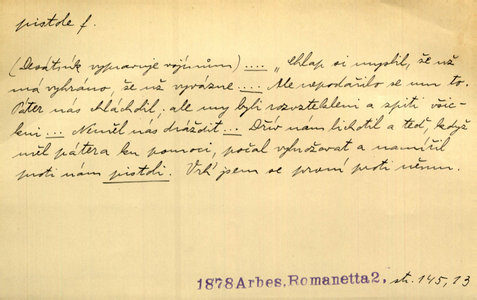 pistole f.
(Desátník vypravuje vojínům) .... „Chlap si myslil, že už
má vyhráno, že už vyvázne.... Ale nepodařilo se mu to.
Páter nás hláchdil; ale my byli rozvzteklení a spití všic-
kni... Neměl nás drážditi... Dřív nám lichotil a teď, když
měl pátera ku pomoci, počal vyhrožovat a namířil
proti nám pistoli. Vrhl jsem se první proti němu.
1878 Arbes, Romanetta 2, str. 145, 13